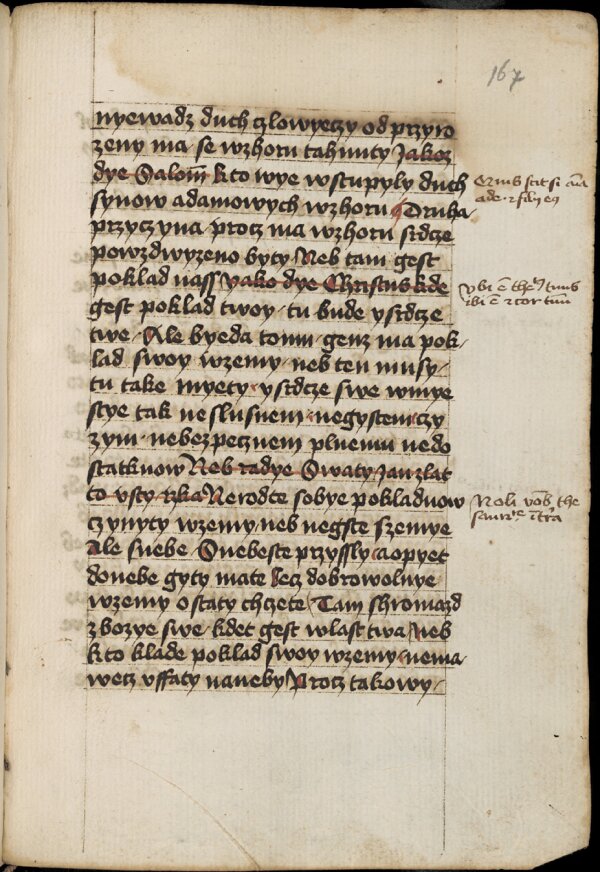 167
nyewadz duch czlowyeczy od przyro
zeny ma se wzhoru tahnuty Jakoz
dye Salom kto wye wstupyly duch
synow adamowych wzhoru Druha
przyczyna procz ma wzhoru srdcze
powzdwyzeno byty Neb tam gest
poklad nass yako dye Christus kde
gest poklad twoy tu bude ysrdcze
twe Ale byeda tomu genz ma pok
lad swoy wzemy neb ten musy
tu take myety ysrdcze swe wmye
stye tak neslusnem negystem czy
zym nebezpecznem plnemu nedo
statkuow Neb radye Swaty Jan zlat
to vsty rzka Nerodte sobye pokladuow
czynyty wzemy neb negste szemye
Ale snebe Snebeste przyssly aopyet
donebe gyty mate lecz dobrowolnye
wzemy ostaty chczete Tam shromazd
zbozye swe kdet gest wlast twa Neb
kto klade poklad swoy wzemy nema
wecz vffaty naneby Procz takowy
ade
vbi ē the tuus
ibi ē cor tuū
Noli vob the